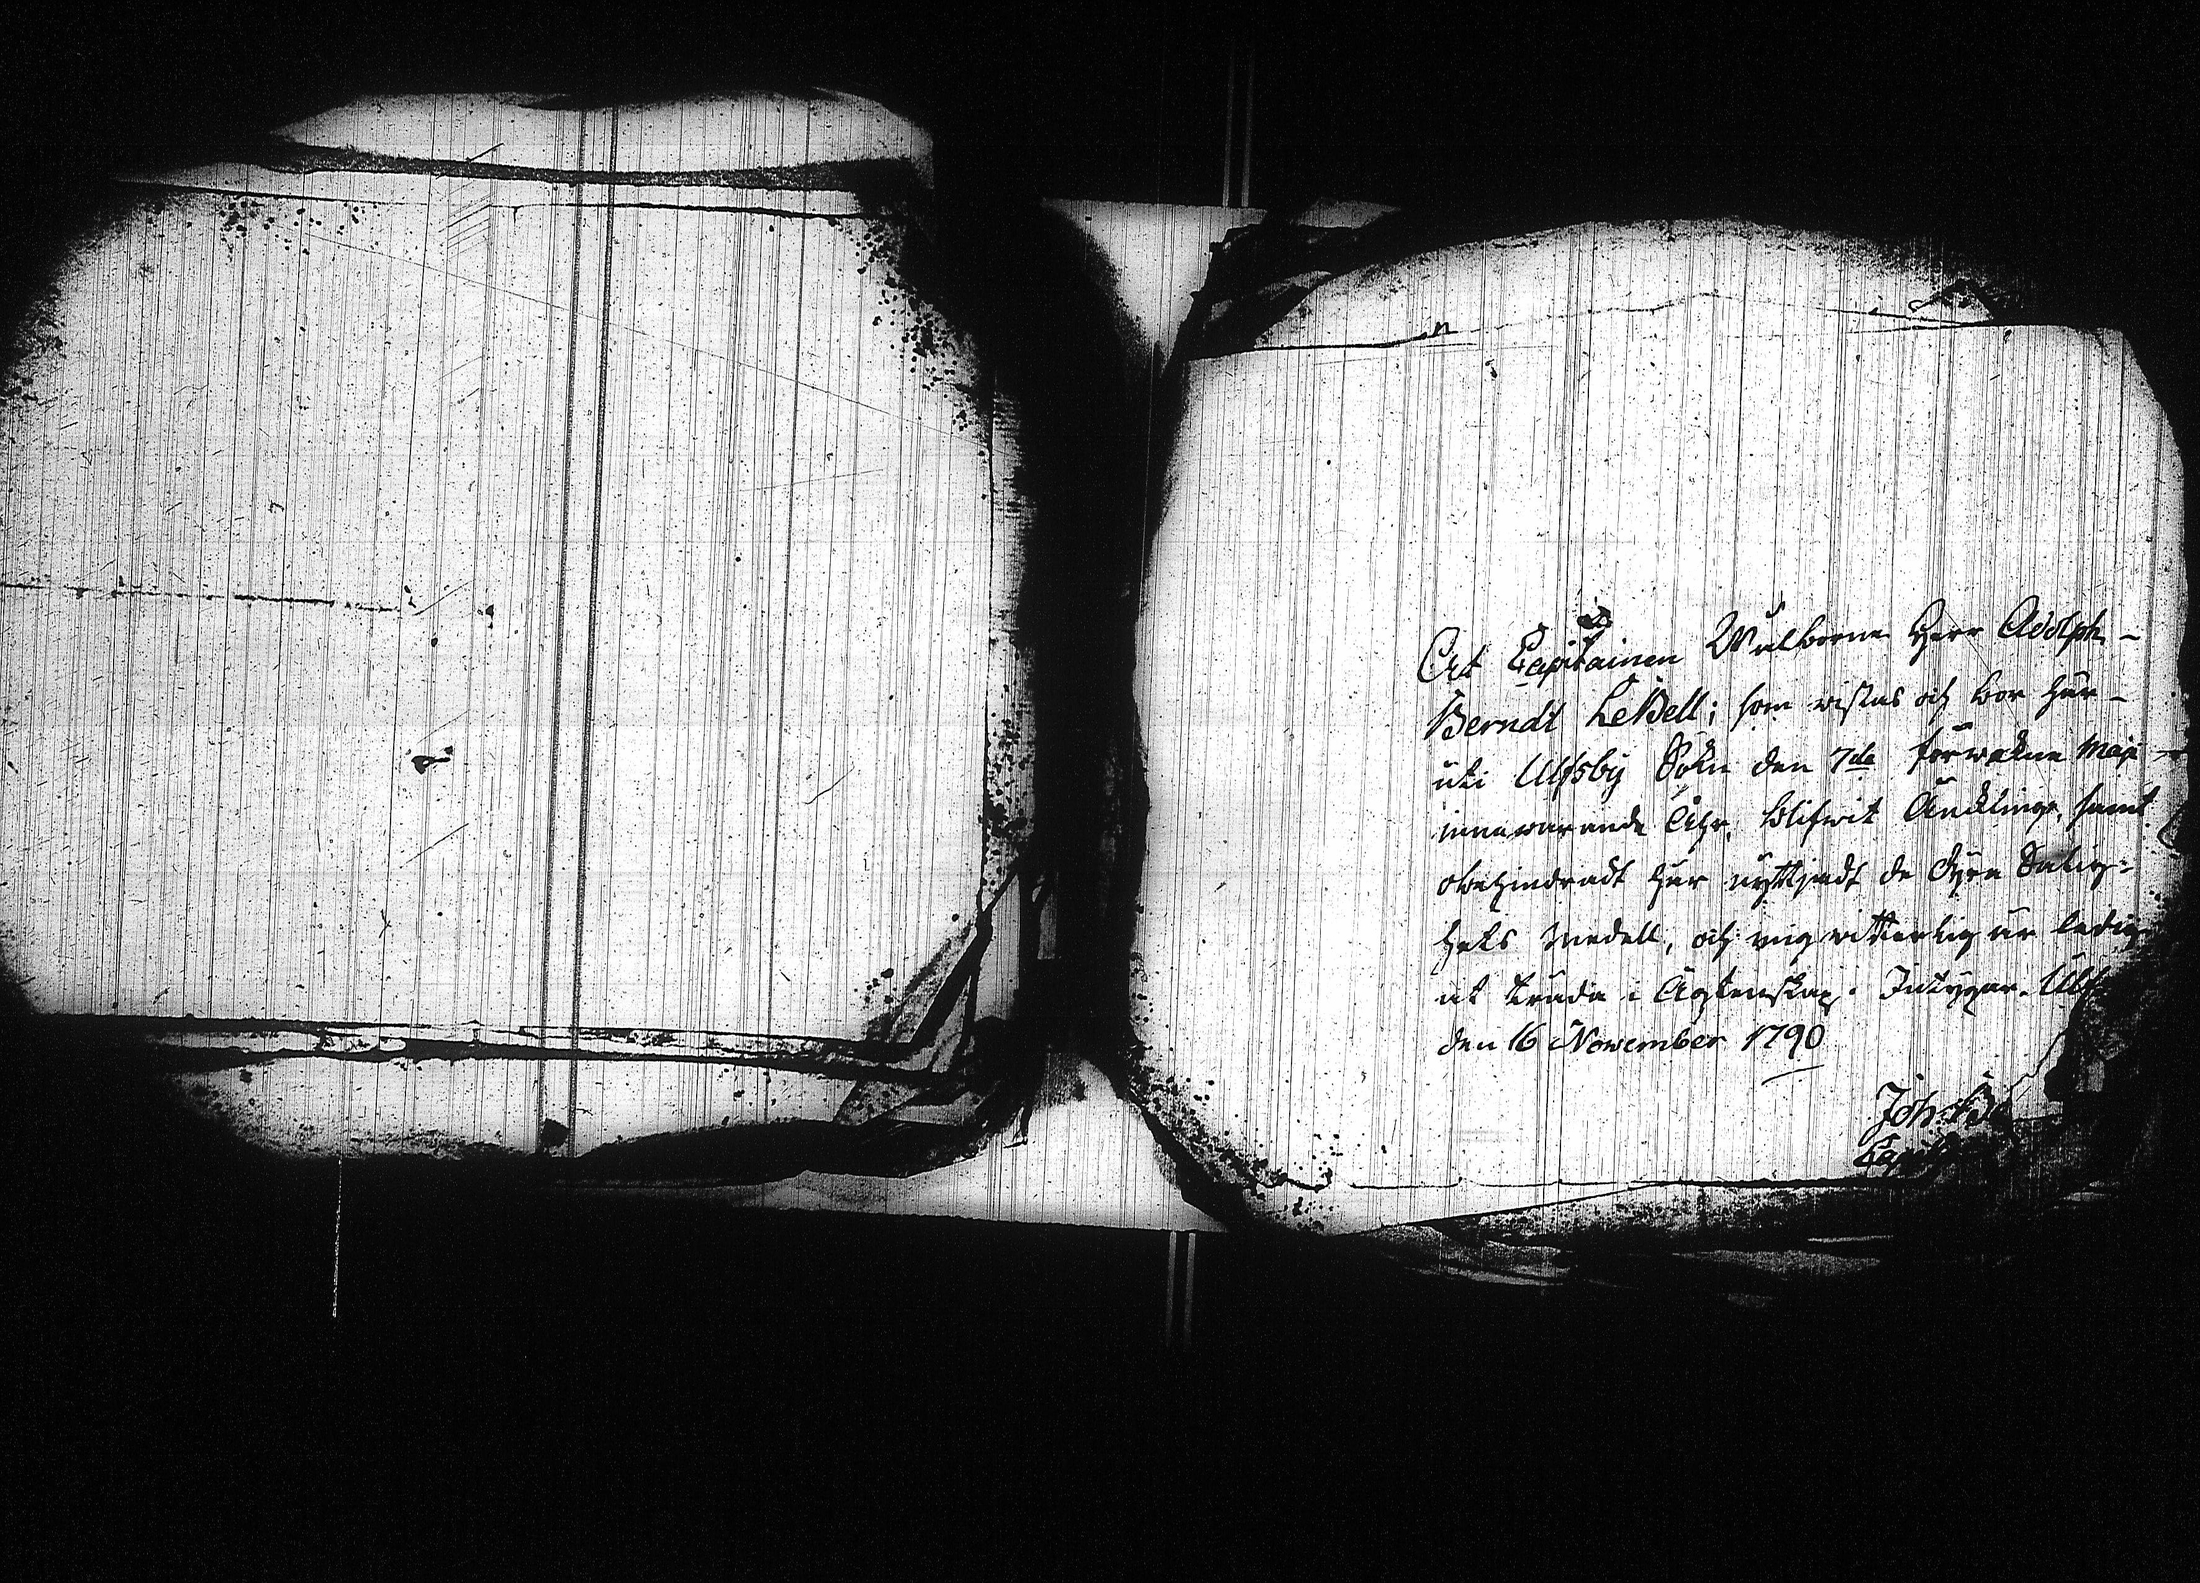 At Capitainen Wälborne Herr Adolph –
Berndt LeBell; som vistas och bor här –
uti Ulfsby Sokn den 7de förwekne Maji
innewarande Åhr, blifwit Änckling, samt
obehindradt här nyttjadt de dyra Salig-
hets medell, och mig witterlig är ledig
at träda i Ägtenskap. Intygar. Ulfs
den 16 November 1790
Joh: